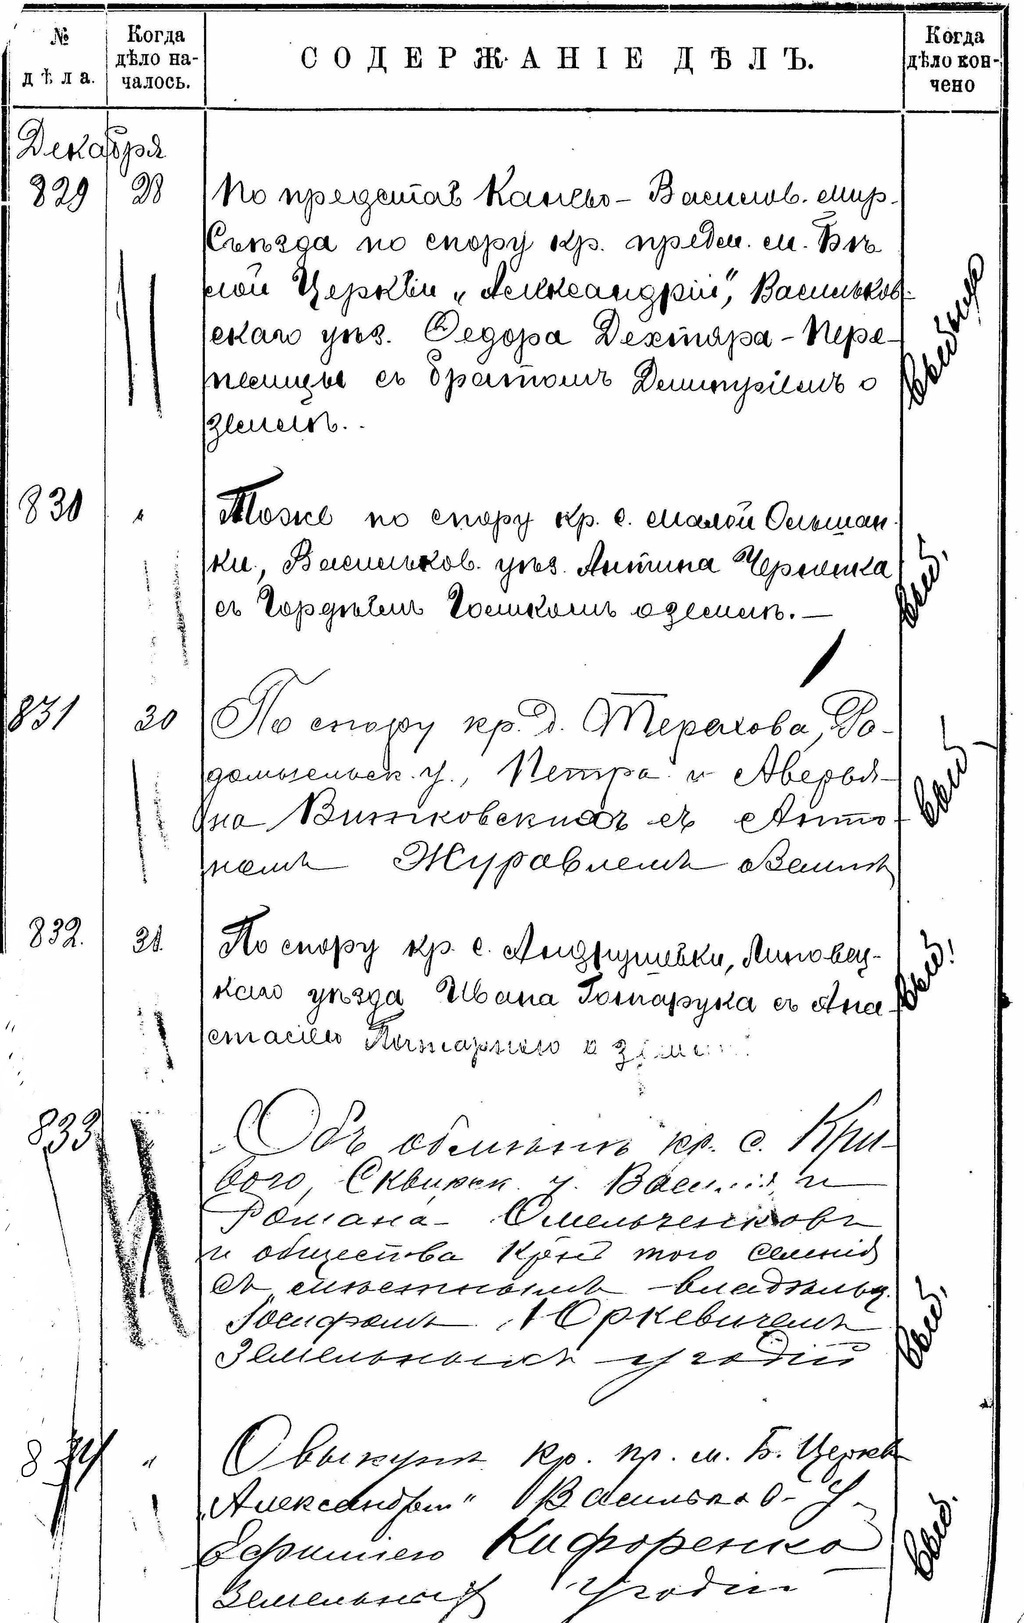 № дѣла.
Когда дѣло началось.
СОДЕРЖАНІЕ ДѢЛЪ.
Когда дѣло кончено
Декабря
829 28 По представ Канево-Васильков. мир.
Съѣзда по спору кр. предм. м. Бѣ
лой Церкви „Александрія", Васильков-
скаго уѣз. Федора Дехтяра-Пере-
пелицы съ братомъ Димитріемъ о
землѣ.
выбыло
830 " Тоже по спору кр. с. Малой Ольшан-
ки, Васильков. уѣз. Антина Черненка
съ Гордѣемъ Гошкомъ о землѣ.—
выб.
831 30 По спору кр. д. Терехова, Ра-
домысльск. у., Петра и Аверья-
на Витковскихъ съ Анто-
номъ Журавлемъ о землѣ
выб
832. 31. По спору кр. с. Андрушевки, Липовец-
каго уѣзда Ивана Гонтарука съ Ана-
стасіею о землѣ
выб.
833 Объ обмѣнѣ кр. с. Кри-
вого, Сквирск. у. Василія и
Романа Омельченковъ
и общества Крнъ того селенія
съ мѣстнымъ владѣльц.
Іосифомъ Юркевичемъ
земельныхъ угодій
выб.
834 " О выкупѣ кр. пр. м. Б. Церкв
„Александрія" Васильков- у.
Ефиміею Кифоренко
земельных угодій
выб.